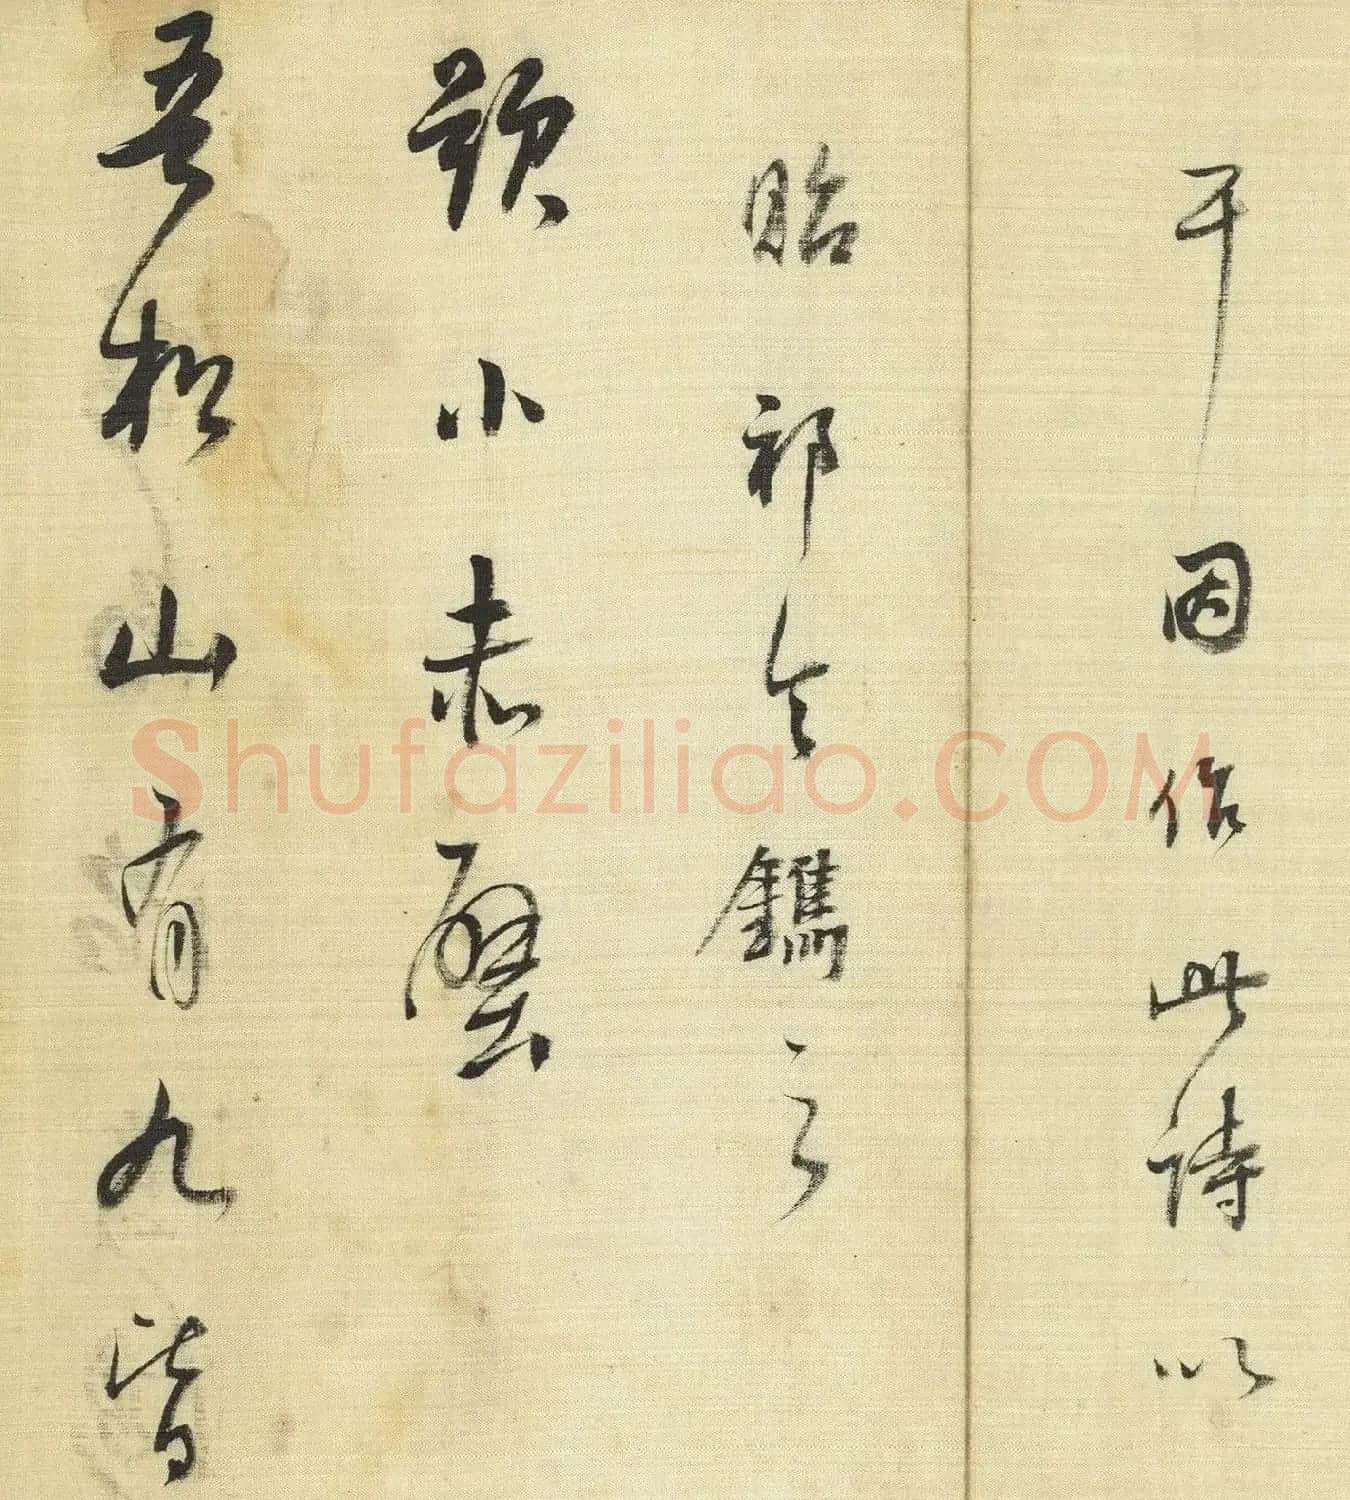 干因作此詩以
貽祁令鐫之
題小赤壁
吾松山有九皆
Shufaziliao.COM